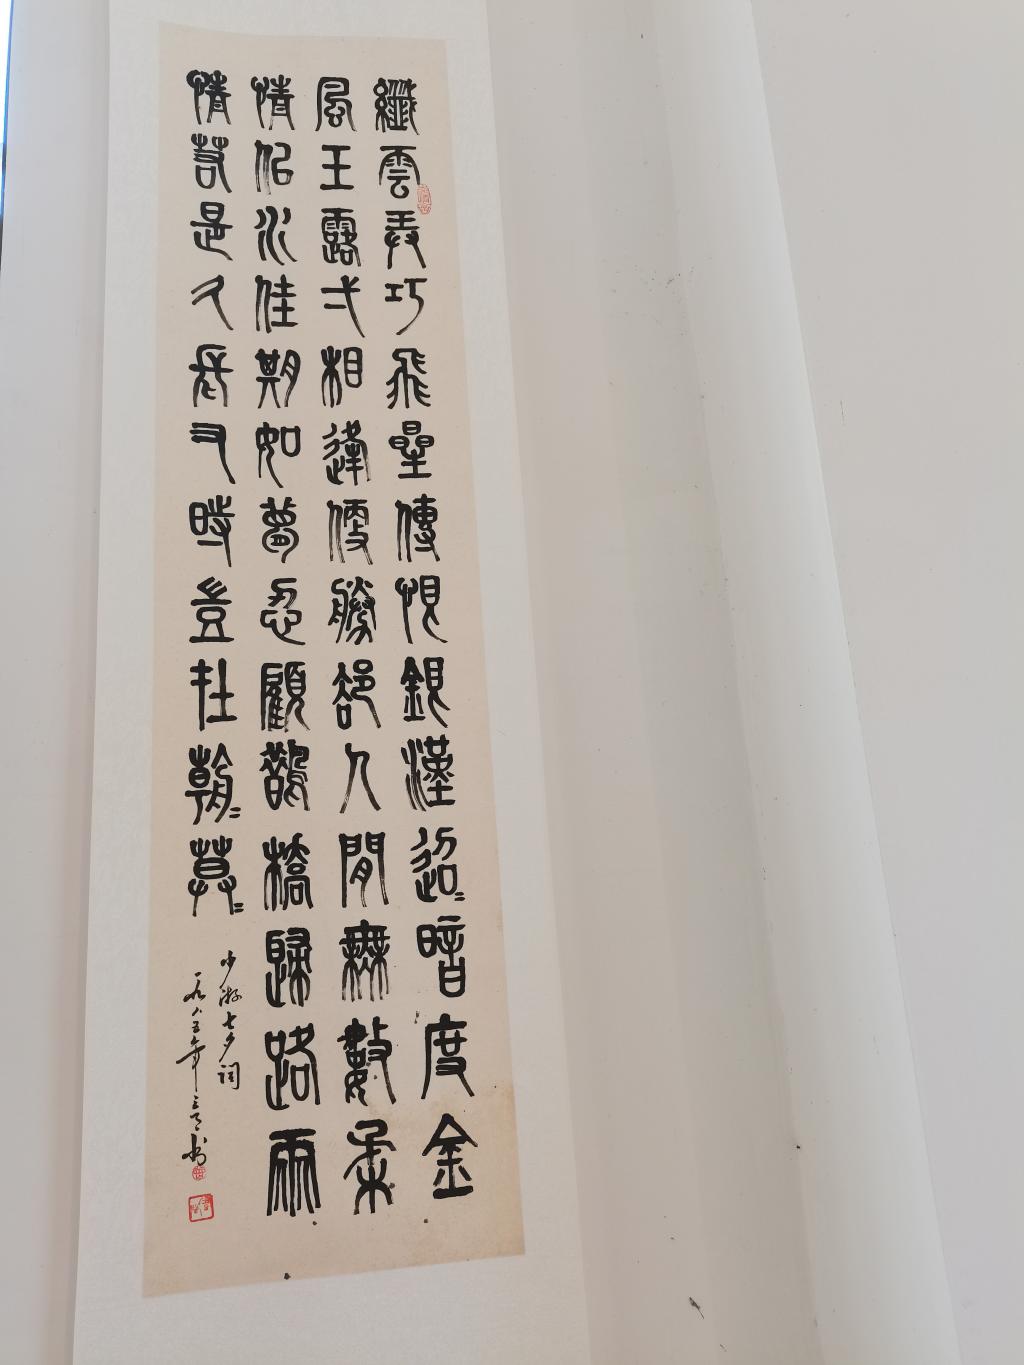 纖雲弄巧飛曐傳恨銀漢迢〻暗度金
風玉露弌相逢便勝卻人間無數柔
情似水佳期如夢忍顧鵲橋歸路兩
情若是久長又時豈在朝〻暮〻
少游七夕詞
一九八五年 书